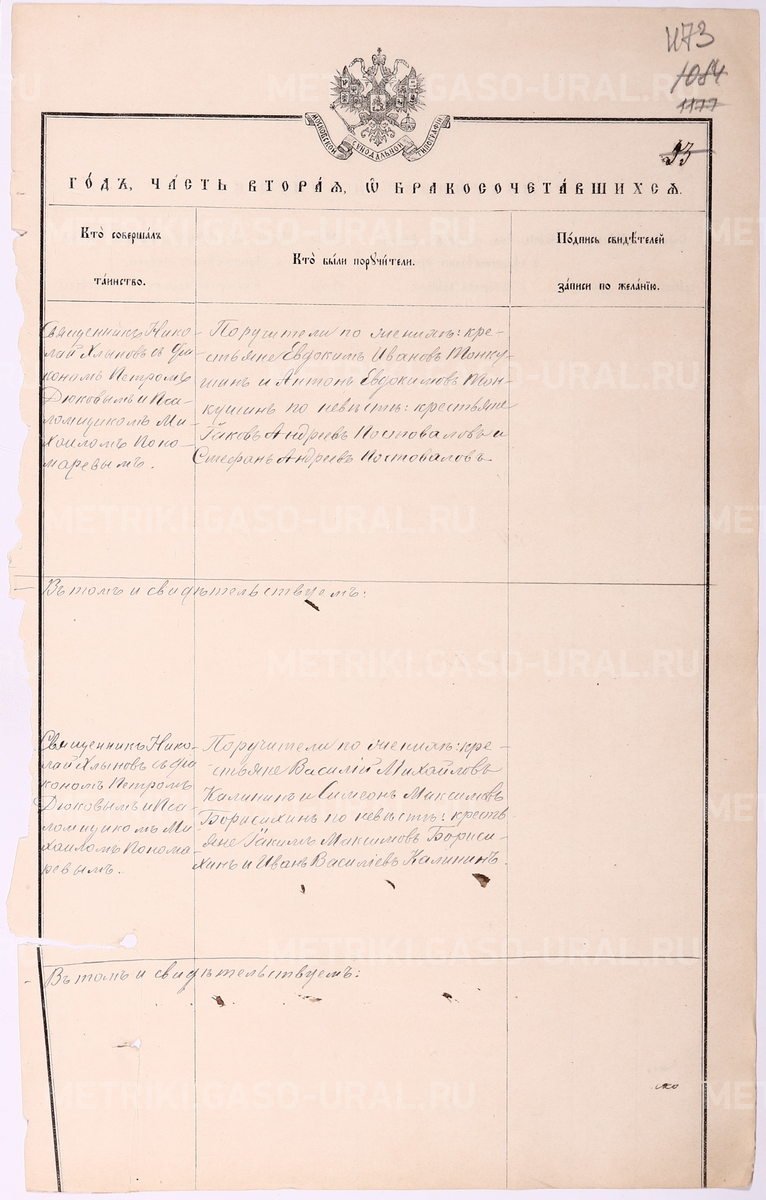 1173
1084
1177
93
МОСКОВСКОЙ СУНОДАЛЬНОЙ ТИПОГРАФІИ
ГО́ДЪ, ЧА́СТЬ ВТОРА́Я, Ѽ БРАКОСОЧЕТА́ВШИХСЯ.
Кто̀ соверша́лъ
та́инство.
Кто̀ бы́ли пору́чи́тели.
По́дпись свидѣ́телей
за́писи по жела́нію.
Священникъ Нико-
лай Хлыновъ съ діа-
кономъ Петромъ
Дюковымъ и Пса-
ломщикомъ Ми-
хаиломъ Поно-
маревымъ.
Поручители по женихѣ: кре-
стьяне Евдокимъ Ивановъ Тонку-
шинъ и Антонъ Евдокимовъ Тон-
кушинъ по невѣстѣ: крестьяне
Іаковъ Андреевъ Постоваловъ и
Стефанъ Андреевъ Постоваловъ
Въ томъ и свидѣтельствуемъ:
Священникъ Нико-
лай Хлыновъ съ діа-
кономъ Петромъ
Дюковымъ и Пса-
ломщикомъ Ми-
хаиломъ Понома-
ревымъ.
Поручители по женихѣ: кре-
стьяне Василій Михайловъ
Калининъ и Симеонъ Максимовъ
Борисихинъ по невѣстѣ: кресть-
яне Іакимъ Максимовъ Бориси-
хинъ и Иванъ Василіевъ Калининъ.
Въ томъ и свидѣтельствуемъ:
METRIKI.GASO-URAL.RU